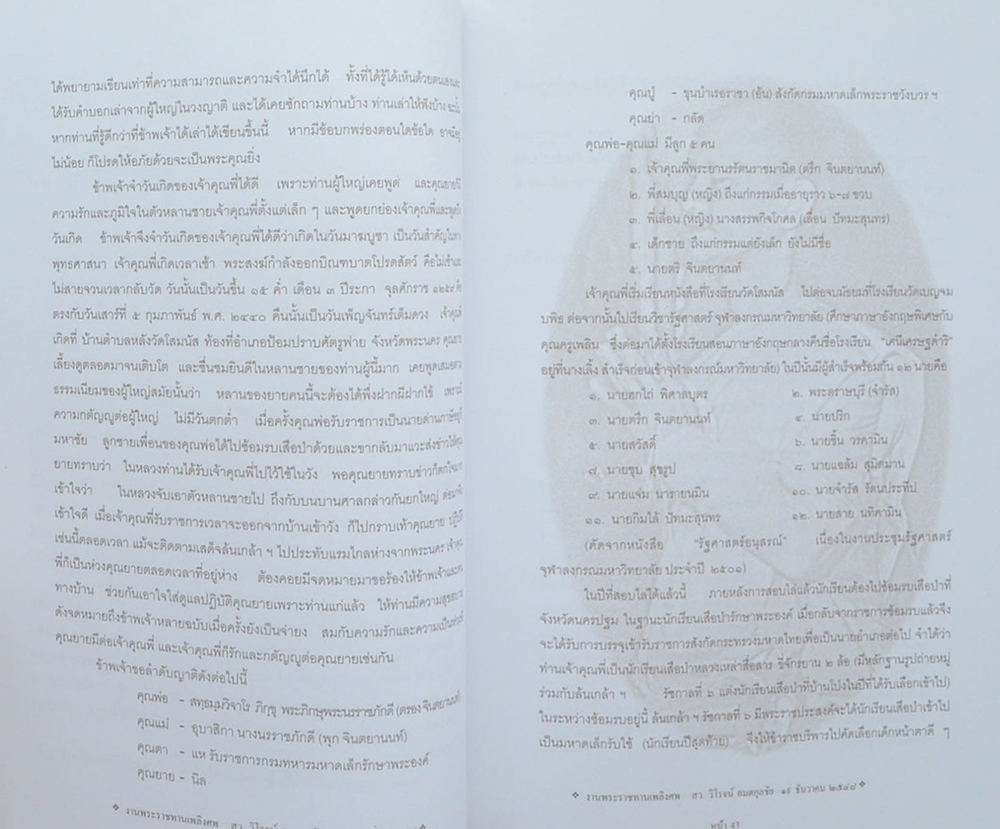 ได้พยายามเขียนเท่าที่ความสามารถและความจำได้นึกได้ ทั้งที่ได้รู้ได้เห็นด้วยตนเองและ
ได้รับคำบอกเล่าจากผู้ใหญ่ในวงญาติ และได้เคยซักถามท่านบ้าง ท่านเล่าให้ฟังบ้าง ฉะนั้น
หากท่านที่รู้ดีกว่าที่ข้าพเจ้าได้เล่าได้เขียนขึ้นนี้ หากมีข้อบกพร่องตอนใดข้อใด อาจมีอยู่
ไม่น้อย ก็โปรดให้อภัยด้วยจะเป็นพระคุณยิ่ง
ข้าพเจ้าจำวันเกิดของเจ้าคุณพี่ได้ดี เพราะท่านผู้ใหญ่เคยพูด และคุณยายมี
ความรักและภูมิใจในตัวหลานชายเจ้าคุณพี่ตั้งแต่เล็ก ๆ และพูดยกย่องเจ้าคุณพี่และพูดถึง
วันเกิด ข้าพเจ้าจึงจำวันเกิดของเจ้าคุณพี่ได้ดีว่าเกิดในวันมาฆบูชา เป็นวันสำคัญในทาง
พุทธศาสนา เจ้าคุณพี่เกิดเวลาเช้า พระสงฆ์กำลังออกบิณฑบาตโปรดสัตว์ คือไม่เช้าและ
ไม่สายจวนเวลากลับวัด วันนั้นเป็นวันขึ้น ๑๕ ค่ำ เดือน ๓ ปีระกา จุลศักราช ๑๒๕๙
ตรงกับวันเสาร์ที่ ๕ กุมภาพันธ์ พ.ศ. ๒๔๔๐ คืนนั้นเป็นวันเพ็ญจันทร์เต็มดวง เจ้าคุณพี่
เกิดที่ บ้านตำบลหลังวัดโสมนัส ท้องที่อำเภอป้อมปราบศัตรูพ่าย จังหวัดพระนคร คุณยาย
เลี้ยงดูตลอดมาจนเติบโต และชื่นชมยินดีในหลานชายของท่านผู้นี้มาก เคยพูดเสมอตาม
ธรรมเนียมของผู้ใหญ่สมัยนั้นว่า หลานของยายคนนี้จะต้องได้พึ่งฝากผีฝากไข้ เพราะมี
ความกตัญญูต่อผู้ใหญ่ ไม่มีวันตกต่ำ เมื่อครั้งคุณพ่อรับราชการเป็นนายด่านภาษีอยู่
มหาชัย ลูกชายเพื่อนของคุณพ่อได้ไปซ้อมรบเสือป่าด้วยและขากลับมาแวะส่งข่าวให้คุณ
ยายทราบว่า ในหลวงท่านได้รับเจ้าคุณพี่ไปไว้ใช้ในวัง พอคุณยายทราบข่าวก็ตกใจมาก
เข้าใจว่า ในหลวงจับเอาตัวหลานชายไป ถึงกับบนบานศาลกล่าวกันยกใหญ่ ต่อมาจึง
เข้าใจดี เมื่อเจ้าคุณพี่รับราชการเวลาจะออกจากบ้านเข้าวัง ก็ไปกราบเท้าคุณยาย ปฏิบัติ
เช่นนี้ตลอดเวลา แม้จะติดตามเสด็จล้นเกล้า ฯ ไปประทับแรมไกลห่างจากพระนคร เจ้าคุณ
พี่ก็เป็นห่วงคุณยายตลอดเวลาที่อยู่ห่าง ต้องคอยมีจดหมายมาขอร้องให้ข้าพเจ้าและคน
ทางบ้าน ช่วยกันเอาใจใส่ดูแลปฏิบัติคุณยายเพราะท่านแก่แล้ว ให้ท่านมีความสุขสบาย
ดังจดหมายถึงข้าพเจ้าหลายฉบับเมื่อครั้งยังเป็นจ่ายง สมกับความรักและความเป็นห่วงที่
คุณยายมีต่อเจ้าคุณพี่ และเจ้าคุณพี่ก็รักและกตัญญูต่อคุณยายเช่นกัน
ข้าพเจ้าขอลำดับญาติดังต่อไปนี้
คุณพ่อ - สทฺธมฺมวิจาโร ภิกฺขุ พระภิกษุพระนรราชภักดี (ตรอง จินตยานนท์)
คุณแม่ - อุบาสิกา นางนรราชภักดี (พุก จินตยานนท์)
คุณตา - แห รับราชการกรมทหารมหาดเล็กรักษาพระองค์
คุณยาย - นิล
❖ งานพระราชทานเพลิงศพ สว. วิโรจน์ อมตกุลชัย
คุณปู่ - ขุนบำเรอราชา (อ้น) สังกัดกรมมหาดเล็กพระราชวังบวร ฯ
คุณย่า - กลัด
คุณพ่อ-คุณแม่ มีลูก ๕ คน
๑. เจ้าคุณพี่พระยานรรัตนราชมานิต (ตรึก จินตยานนท์)
๒. พี่สมบุญ (หญิง) ถึงแก่กรรมเมื่ออายุราว ๖-๗ ขวบ
๓. พี่เลื่อน (หญิง) นางสรรพกิจโกศล (เลื่อน ปัทมะสุนทร)
๔. เด็กชาย ถึงแก่กรรมแต่ยังเล็ก ยังไม่มีชื่อ
๕. นายตริ จินตยานนท์
เจ้าคุณพี่เริ่มเรียนหนังสือที่โรงเรียนวัดโสมนัส ไปต่อจบมัธยมที่โรงเรียนวัดเบญจม
บพิธ ต่อจากนั้นไปเรียนวิชารัฐศาสตร์ จุฬาลงกรณมหาวิทยาลัย (ศึกษาภาษาอังกฤษพิเศษกับ
คุณครูเพลิน ซึ่งต่อมาได้ตั้งโรงเรียนสอนภาษาอังกฤษกลางคืนชื่อโรงเรียน "เคนีเศรษฐดำริ"
อยู่ที่นางเลิ้ง สำเร็จก่อนเข้าจุฬาลงกรณมหาวิทยาลัย) ในปีนั้นมีผู้สำเร็จพร้อมกัน ๑๒ นายคือ
๑. นายฮกไถ่ พิศาลบุตร ๒. พระตราษบุรี (จำรัส)
๓. นายตรึก จินตยานนท์ ๔. นายปริก
๕. นายสวัสดิ์ ๖. นายชื้น วรคามิน
๗. นายชุบ สุขรูป ๘. นายแฉล้ม สุมิตมาน
๙. นายแจ่ม นารายนมิน ๑๐. นายจำรัส รัตนประทีป
๑๑. นายกิมไล้ ปัทมะสุนทร ๑๒. นายสาย นทีคามิน
(คัดจากหนังสือ "รัฐศาสตร์อนุสรณ์" เนื่องในงานประชุมรัฐศาสตร์
จุฬาลงกรณมหาวิทยาลัย ประจำปี ๒๕๐๑)
ในปีที่สอบไล่ได้แล้วนี้ ภายหลังการสอบไล่แล้วนักเรียนต้องไปซ้อมรบเสือป่าที่
จังหวัดนครปฐม ในฐานะนักเรียนเสือป่ารักษาพระองค์ เมื่อกลับจากราชการซ้อมรบแล้วจึง
จะได้รับการบรรจุเข้ารับราชการสังกัดกระทรวงมหาดไทยเพื่อเป็นนายอำเภอต่อไป จำได้ว่า
ท่านเจ้าคุณพี่เป็นนักเรียนเสือป่าหลวงเหล่าสื่อสาร ขี่จักรยาน ๒ ล้อ (มีหลักฐานรูปถ่ายหมู่
ร่วมกับล้นเกล้า ฯ รัชกาลที่ ๖ แต่งนักเรียนเสือป่าที่บ้านโป่งในปีที่ได้รับเลือกเข้าไป)
ในระหว่างซ้อมรบอยู่นี้ ล้นเกล้า ฯ รัชกาลที่ ๖ มีพระราชประสงค์จะได้นักเรียนเสือป่าเข้าไป
เป็นมหาดเล็กรับใช้ (นักเรียนปีสุดท้าย) จึงให้ข้าราชบริพารไปคัดเลือกเด็กหน้าตาดี ๆ
❖ งานพระราชทานเพลิงศพ สว. วิโรจน์ อมตกุลชัย ๑๙ ธันวาคม ๒๕๔๘ ❖
หน้า 43